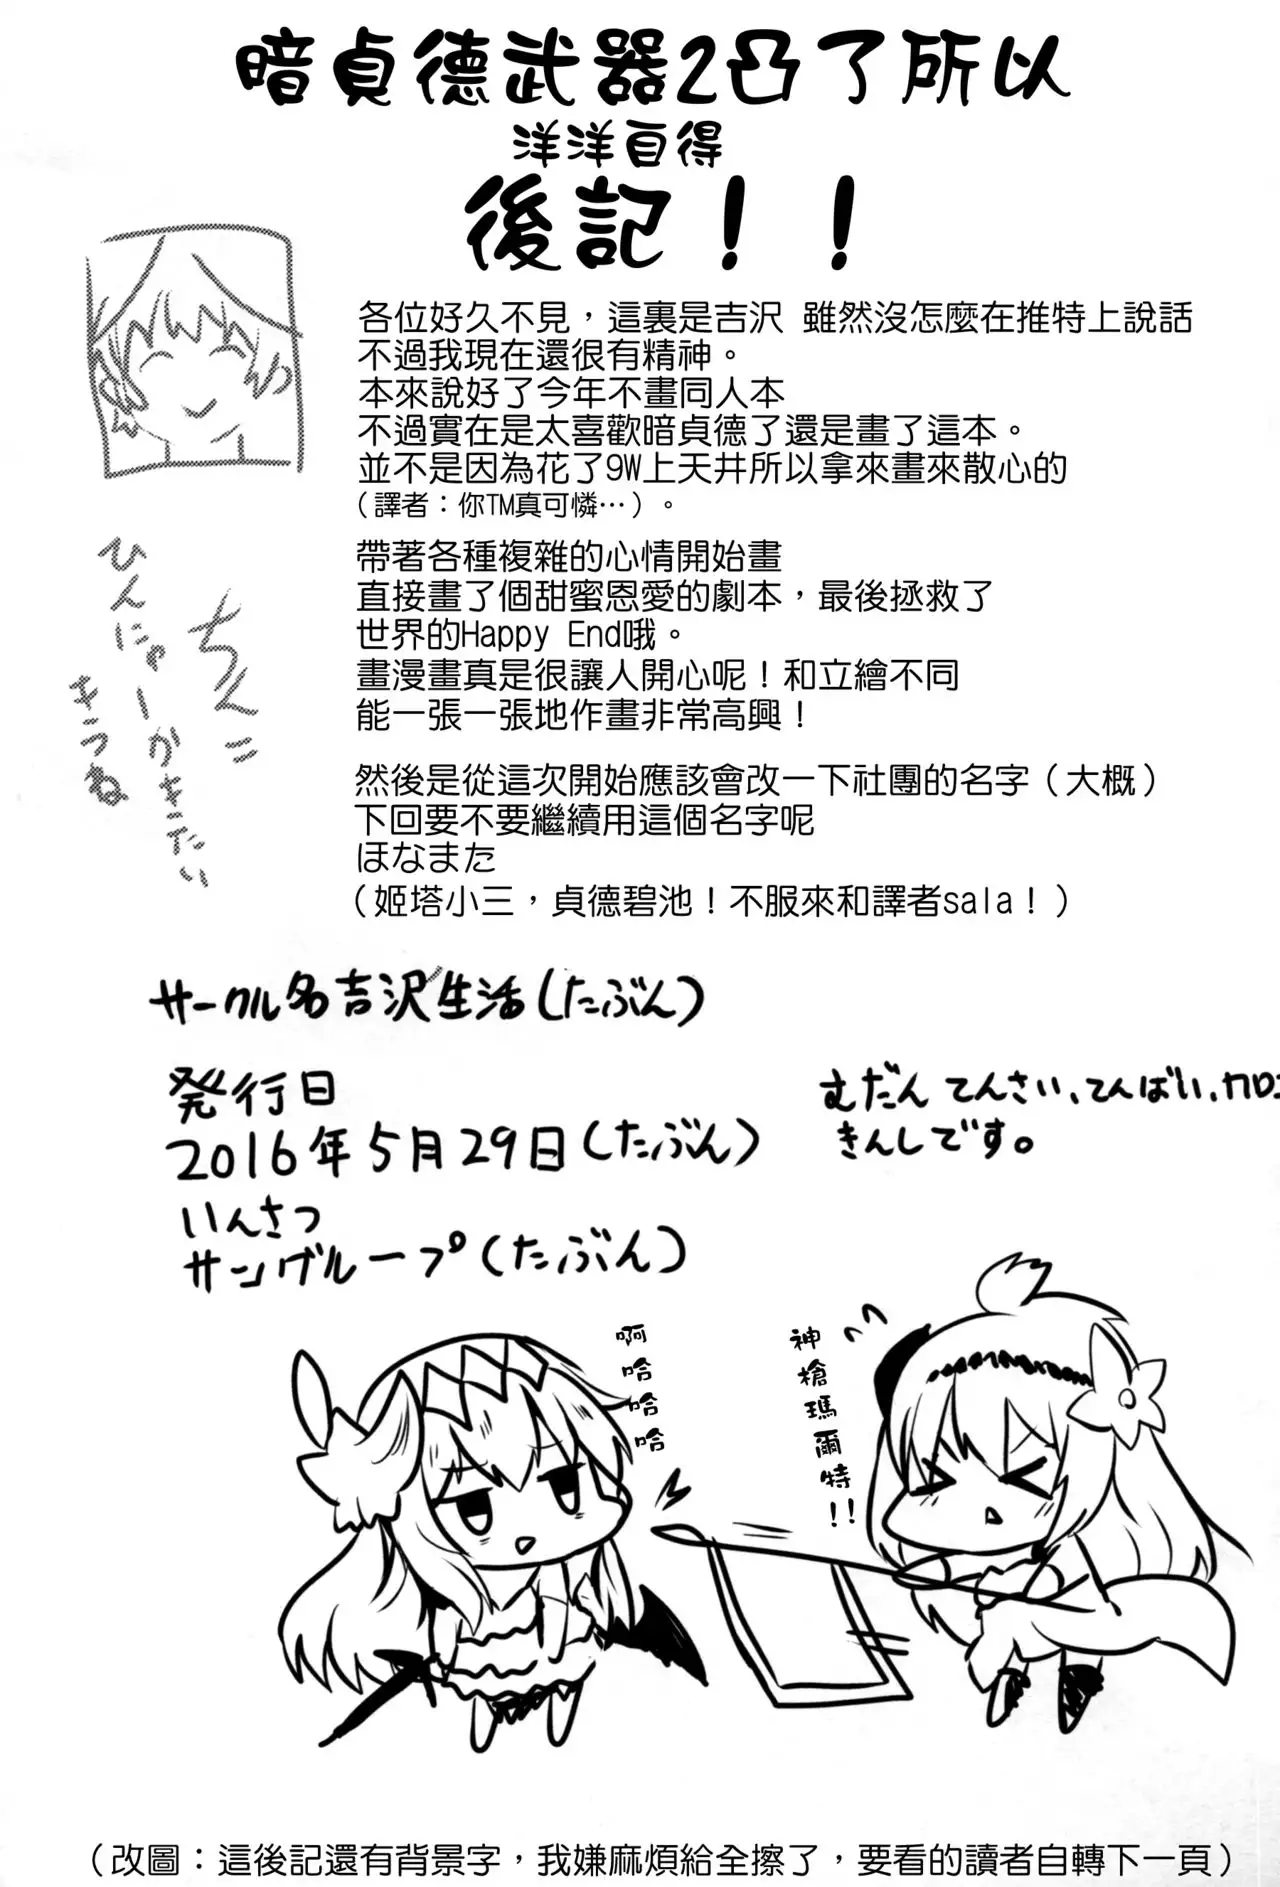 暗貞德武器2凸了所以
洋洋自得
後記！！
各位好久不見，這裏是吉沢 雖然沒怎麼在推特上說話
不過我現在還很有精神。
本來說好了今年不畫同人本
不過實在是太喜歡暗貞德了還是畫了這本。
並不是因為花了9W上天井所以拿來畫來散心的
（譯者：你TM真可憐…）。
帶著各種複雜的心情開始畫
直接畫了個甜蜜恩愛的劇本，最後拯救了
世界的Happy End哦。
畫漫畫真是很讓人開心呢！和立繪不同
能一張一張地作畫非常高興！
然後是從這次開始應該會改一下社團的名字（大概）
下回要不要繼續用這個名字呢
ほなまた
（姬塔小三，貞德碧池！不服來和譯者sala！）
ちんこ
ひんにゅーかきたい
きうね
サークル名吉沢生活(たぶん)
発行日
2016年5月29日(たぶん)
いんさつ
サングループ(たぶん)
むだんてんさい、てんばい、
きんしです。
啊哈哈哈
神槍瑪爾特!!
（改圖：這後記還有背景字，我嫌麻煩給全擦了，要看的讀者自轉下一頁）